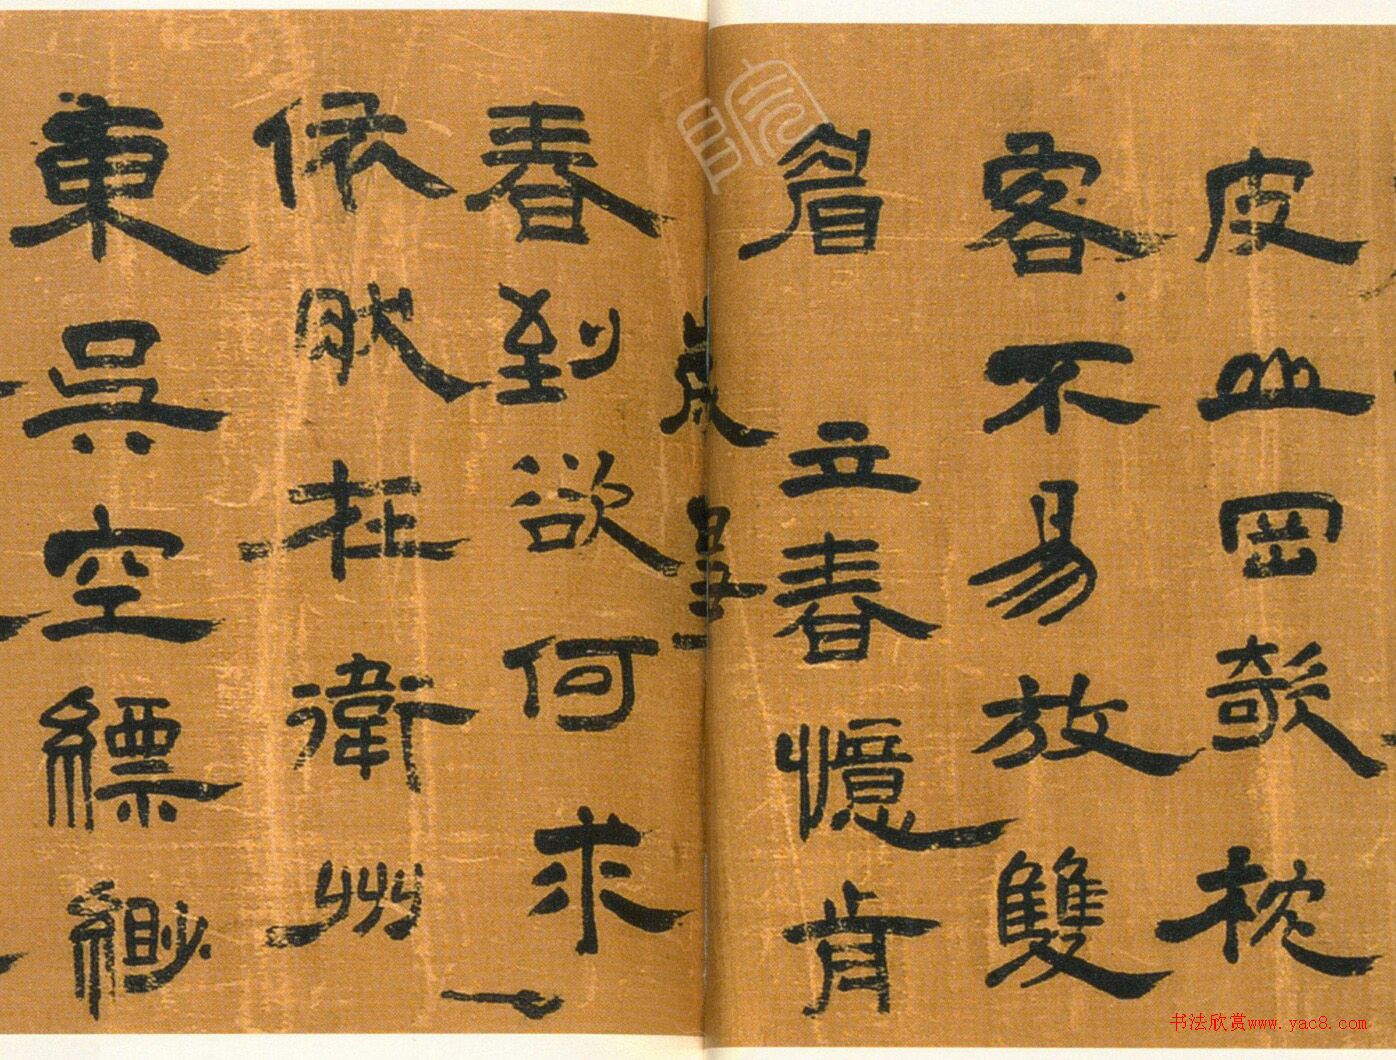 皮丘岡欹枕
客不易放雙
眉 立春憶肯
春到欲何求
依肰在衛州
東吳空縹緲
书法欣赏www.yac8.com